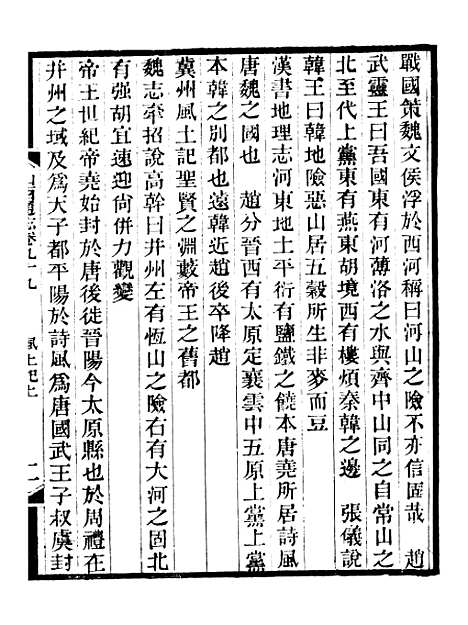 戰國策魏文侯浮於西河稱曰河山之險不亦信固哉　趙
武靈王曰吾國東有河薄洛之水與齊中山同之自常山之
北至代上黨東有燕東胡境西有樓煩秦韓之邊　張儀說
韓王曰韓地險惡山居五穀所生非麥而豆
漢書地理志河東地土平衍有鹽鐵之饒本唐堯所居詩風
唐魏之國也　趙分晉西有太原定襄雲中五原上黨上黨
本韓之別都也遠韓近趙後卒降趙
冀州風土記聖賢之淵藪帝王之舊都
魏志牽招說高幹曰井州左有恆山之險右有大河之固北
有强胡宜速迎尚併力觀變
帝王世紀帝堯始封於唐後徙晉陽今太原縣也於周禮在
井州之域及爲天子都平陽於詩風爲唐國武王子叔虞封
卷九十九
風土記上
二